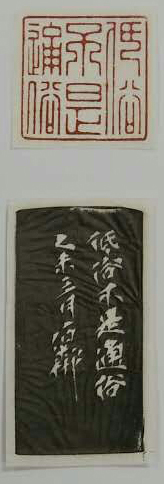 低俗
不是
通俗
低俗不是通俗
乙未三月